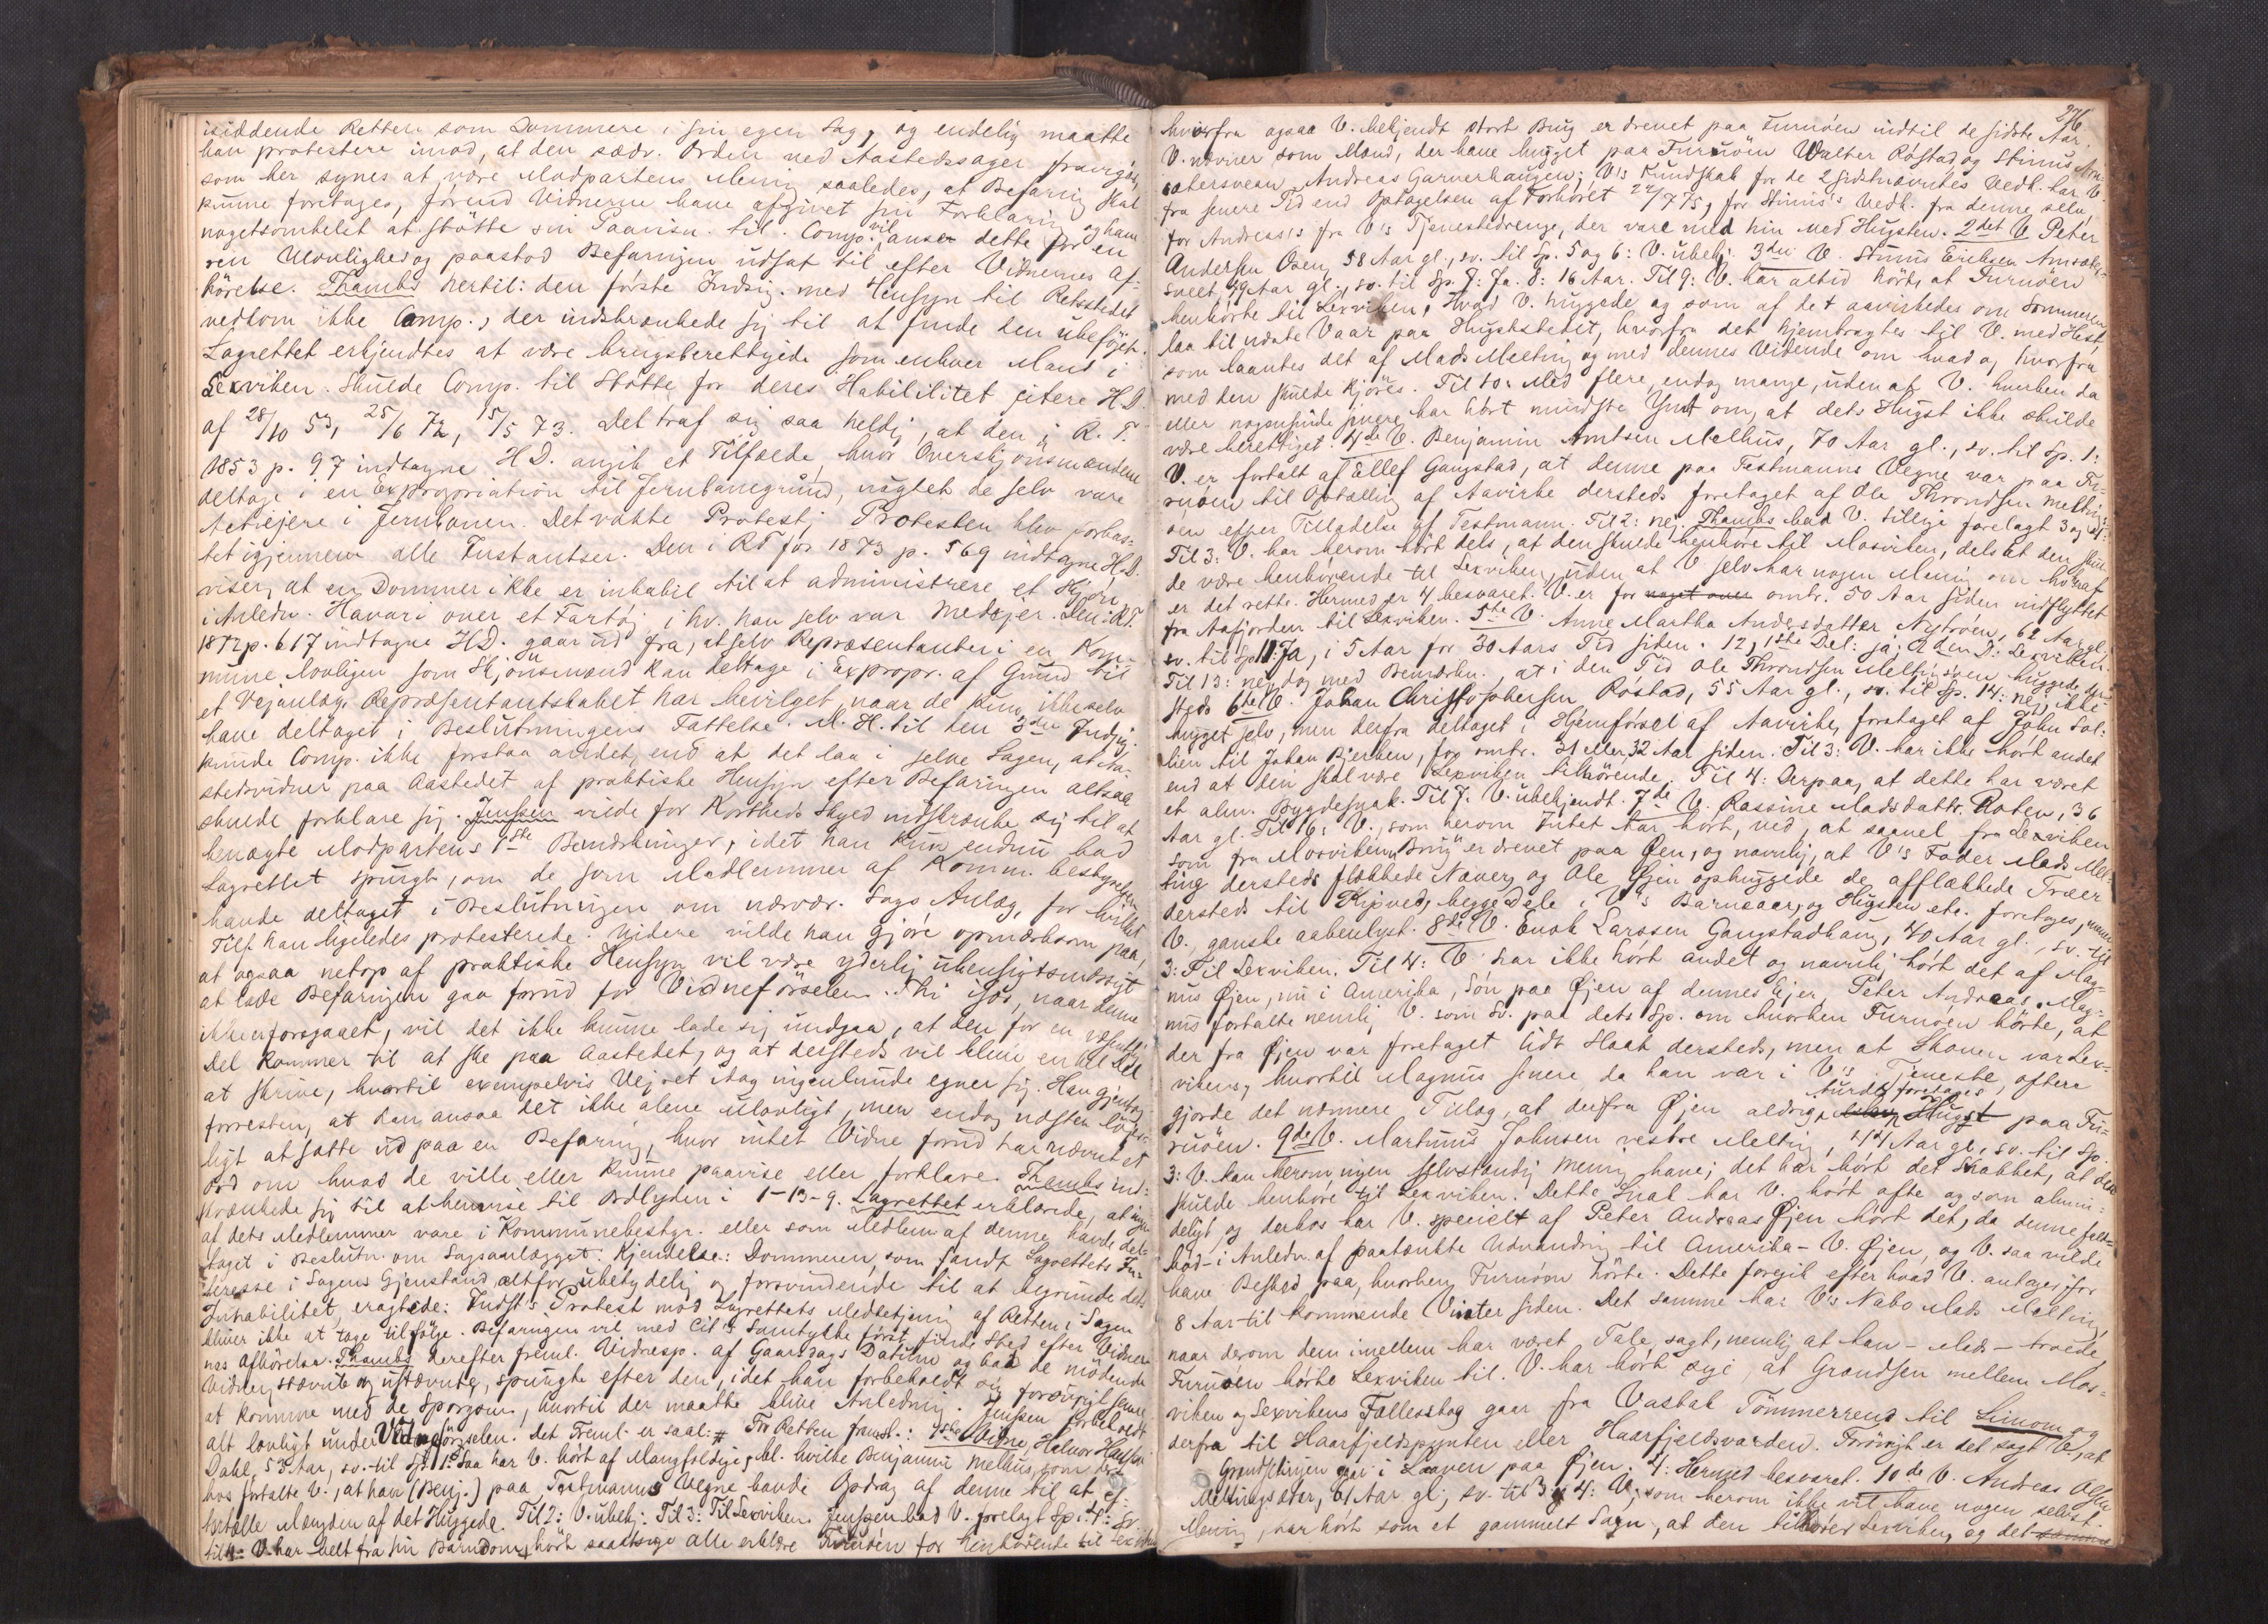 isiddende Retten som Dommere i sin egen Sag, og endelig maatte
han protestere imod, at den sædv. Orden ved Aastedssager fravigés,
som her synes at være Modpartens Mening saaledes, at Befaring skal
kunne foretages, førend Vidnerne have afgivet sin Forklaring og have
nogetsomhelst at støtte sin Paavisn. til. Comp. vil anse dette for en
ren Ulovlighed og paastod Befaringen udsat til efter Vidnernes Af-
hörelse. Thambs hertil: den første Indsig. med Hensyn til Retsstedet
vedkom ikke Comp., der indskrænkede sig til at finde den ubeføjet.
Lagrettet erkjendtes at være brugsberettigede som enhver Mand i
Lexviken. Skulde Comp. til Støtte for deres Habililitet citere H.D.
af 28/10 53, 25/6 72, 15/5 73. Det traf sig saa heldig, at den i R.T.
1853 p. 97 indtagne H.D. angik et Tilfælde, hvor Overskjönsmændene
deltoge i en Expropriation til Jernbanegrund, uagtet de selv vare
Actieejere i Jernbanen. Det vakte Protest; Protesten blev forkas-
tet igjennem alle Instantser. Den i RT for 1873 p. 569 indtagne H.D.
viser, at en Dommer ikke er inhabil til at administrere et Skjön
i Anledn. Havari over et Fartøj, i hv. han selv var Medejer. Den i R.T.
1872 p. 617 indtagne H.D. gaar ud fra, at selv Repræsentanter i en Kom-
mune lovligen som Skjönsmænd kan deltage i Expropr. af Grund til
et Vejanlæg, Repræsentantskabet har bevilget, naar de kun ikke selv
have deltaget i Beslutningens Fattelse. M. H. til den 3die Indsig.
kunde Comp. ikke forstaa andet, end at det laa i selve Sagen, at Aa-
stedsvidner paa Aastedet af praktiske Hensyn efter Befaringen altsaa
skulde forklare sig. Jenssen vilde for Kortheds Skyld indskrænke sig til at
benægte Modpartens 1ste Bemærkninger, idet han kun endnu bad
Lagrettet spurgt, om de som Medlemmer af Komm. bestyrelsen
havde deltaget i Beslutningen om nærvær. Sags Anlæg, for hvilket
Tilf. han ligeledes protesterede. Videre vilde han gjöre opmærksom paa,
at ogsaa netop af praktiske Hensyn vil være yderlig uhensigtsmæssigt
at lade Befaringen gaa forud for Vidneförselen. Thi igos, naar denne
ikke er foregaaet, vil det ikke kunne lade sig undgaa, at den for en væsentl.
Del kommer til at ske paa Aastedet, og at dersteds vil blive en hel Del
at skrive, hvortil exempelvis Vejret idag ingenlunde egner sig. Han gjentog
forresten, at han ansaa det ikke alene ulovligt, men endog næsten löjer-
ligt at sætte ud paa en Befaring, hvor intet Vidne forud har nævnt et
Ord om hvad de ville eller kunne paavise eller forklare. Thambs ind-
skrænkede sig til at henvise til Ordlyden i 1-13-9. Lagrettet erklærede, at ingen
af dets Medlemmer vare i Kommunebestyr. eller som Medlem af denne havde del-
taget i Beslutn. om Sagsanlægget. Kjendelse: Dommeren, som fandt Lagrettets In-
teresse i Sagens Gjenstand altfor ubetydelig og forsvindende til at begrunde dets
Inhabilitet, eragtede: Indst's Protest mod Lagrettets Medbetjening af Retten i Sagen
bliver ikke at tage til følge. Befaringen vil med Cit's Samtykke først finde Sted efter Vidner-
nes Afhörelse. Thambs derefter freml. Vidnesp. af Gaarsdags Datum og bad de mødende
Vidner, stævnte og ustævnte, spurgte efter den, idet han forbeholdt sig forøvrigt senere
at komme med de Spörgsm., hvortil der maatte blive Anledning. Jenssen forbeholdt
alt lovligt under Vidneførselen. Det Freml. er saal: # For Retten fremst.: 1ste Vidne, Halvor Hanssen
Dahl, 53 Aar, sv. til Sp. 1: Saa har V. hört af Mangfoldige, bl. hvilke Benjamin Melhus, som der-
hos fortalte V., at han (Benj.) paa Testmanns Vegne havde Opdrag af denne til at ef-
tertælle Mængden af det Huggede. Til 2: V. ubekj. Til 3: Til Lexviken. Jenssen bad V. forelagt Sp. 4: Sv.
til 4: V. har helt fra sin Barndom hört saa at sige alle erklære Furuøen for henhørende til Lexviken
276.
hvorfra ogsaa V. bekjendt stort Brug er drevet paa Furuøen indtil de sidste Aar.
V. nævner som Mænd, der have hugget paa Furuöen Walter Röstad og Stinus Am-
rokersveen, Andreas Garverhaugen; V's Kundskab for de 2 sidstnævntes Vedk. har V.
fra senere Tid end Optagelsen af Forhöret 22/7 75, for Stinus's Vedk. fra denne selv,
for Andreas's fra V's Tjenestedrenge, der vare med hin ved Hugsten. 2det V. Peter
Andersen Oxen, 58 Aar gl., sv. til Sp. 5 og 6: V. ubekj. 3die V. Stinus Eriksen Amroker-
sveet, 49 Aar gl., sv. til Sp. 7: Ja. 8: 16 Aar. Til 9: V. har altid hört, at Furuöen
henhörte til Lexviken. Hvad V. huggede og som af det aavirkedes om Sommeren
laa til næste Vaar paa Hugststedet, hvorfra det hjembragtes til V. med Hest,
som laantes dit af Mads Melting og med dennes Vidende om hvad og hvorfra
med den skulde kjöres. Til 10: Med flere, endog mange, uden at V. hverken da
eller nogensinde senere har hört mindste Ymt om, at dets Hugst ikke skulde
være berettiget. 4de V. Benjamin Arntsen Melhus, 70 Aar gl., sv. til Sp. 1:
V. er fortalt af Ellef Gangstad, at denne paa Testmanns Vegne var paa Fu-
ruöen til Optælling af Aavirke dersteds foretaget af Ole Throndsen Meltings-
øen efter Tilladelse af Testmann. Til 2: nej. Thambs bad V. tillige forelagt 3 og 4:
Til 3: V. har herom hört dels, at den skulde henhöre til Mosviken, dels at den skul-
de være henhørende til Lexviken, uden at V. selv har nogen Mening om hvoraf
er det rette. Hermed er 4 besvaret. V. er for noget over omtr. 50 Aar siden indflyttet
fra Aafjorden til Lexviken. 5te V. Anne Martha Andersdatter Nytröen, 62 Aar gl.,
sv. til Sp. 11: Ja, i 5 Aar for 30 Aars Tid siden. 12, 1ste Del: ja; 2den D: Lexviken.
Til 13: nej, dog med Bemærkn., at i den Tid Ole Throndsen Meltingsøen huggede der-
steds. 6te V. Johan Christophersen Röstad, 55 Aar gl., sv. til Sp. 14: nej, ikke
hugget selv, men derfra deltaget i Hjemförsel af Aavirke, foretaget af John Sol-
lien til Johan Bjerken, for omtr. 31 eller 32 Aar siden. Til 3: V. har ikke hört andet
end at den skal være Lexviken tilhörende. Til 4: Derpaa, at dette har været
et alm. Bygdesnak. Til 7: V. ubekjendt. 7de V. Rassine Madsdatter Roten, 36
Aar gl. Til 16: V., som herom Intet har hört, ved, at saavel fra Lexviken
som fra Mosviken Brug er drevet paa Øen, og navnlig, at V's Fader Mads Mel-
ting dersteds flækkede Næver, og Ole Øjen ophuggede de afflækkede Træer
dersteds til Kipved, begge Dele i V's Barneaar, og Hugsten etc. foretoges, mener
V., ganske aabenlyst. 8de V. Enok Larssen Gangstadhaug, 40 Aar gl., sv. til
3: Til Lexviken. Til 4: V. har ikke hört andet og navnlig hört det af Mag-
nus Øjen, nu i Amerika, Sön paa Øjen af dennes Ejer, Peter Andreas. Mag-
nus fortalte nemlig V. som Sv. paa dets Sp. om hvorhen Furuöen hörte, at
der fra Øjen var foretaget lidt Haak dersteds, men at Skoven var Lex-
vikens, hvortil Magnus senere, da han var i V's Tjeneste, oftere
gjorde det nærmere Tillæg, at derfra Øjen aldrig turde foretages Hugst paa Fu-
ruöen. 9de V. Martinus Johnsen vestre Melting, 44 Aar gl., sv. til Sp.
3: V. kan herom ingen selvstændig Mening have; det har hört det snakket, at den
skulde henhöre til Lexviken. Dette Snak har V. hört ofte og som almin-
deligt, og derhos har V. specielt af Peter Andreas Øjen hört det, da denne falt-
böd - i Anledn. af paatænkte Udvandring til Amerika - V. Øjen, og V. saa vilde
have Besked paa, hvorhen Furuöen hörte. Dette foregik efter hvad V. antager for
8 Aar til kommende Vinter siden. Det samme har V's Nabo Mads Melting,
naar derom dem imellem har været Tale, sagt, nemlig at han - Mads - troede
Furuöen hörte Lexviken til. V. har hört sige, at Grændsen mellem Mos-
viken og Lexvikens Fællesskog gaar fra Vastak Tömmerrend til Limom og
derfra til Haarfjeldspynten eller Haarfjeldsvarden. Forövrigt er det sagt V., at
Grændselinjen gaar i Laaven paa Øjen. 4: Hermed besvaret. 10de V. Andreas Olsen
Meltingsæter, 61 Aar gl., sv. til 3 og 4: V., som herom ikke vil have nogen selvst.
Mening, har hört som et gammelt Sagn, at den tilhörer Lexviken, og det samme